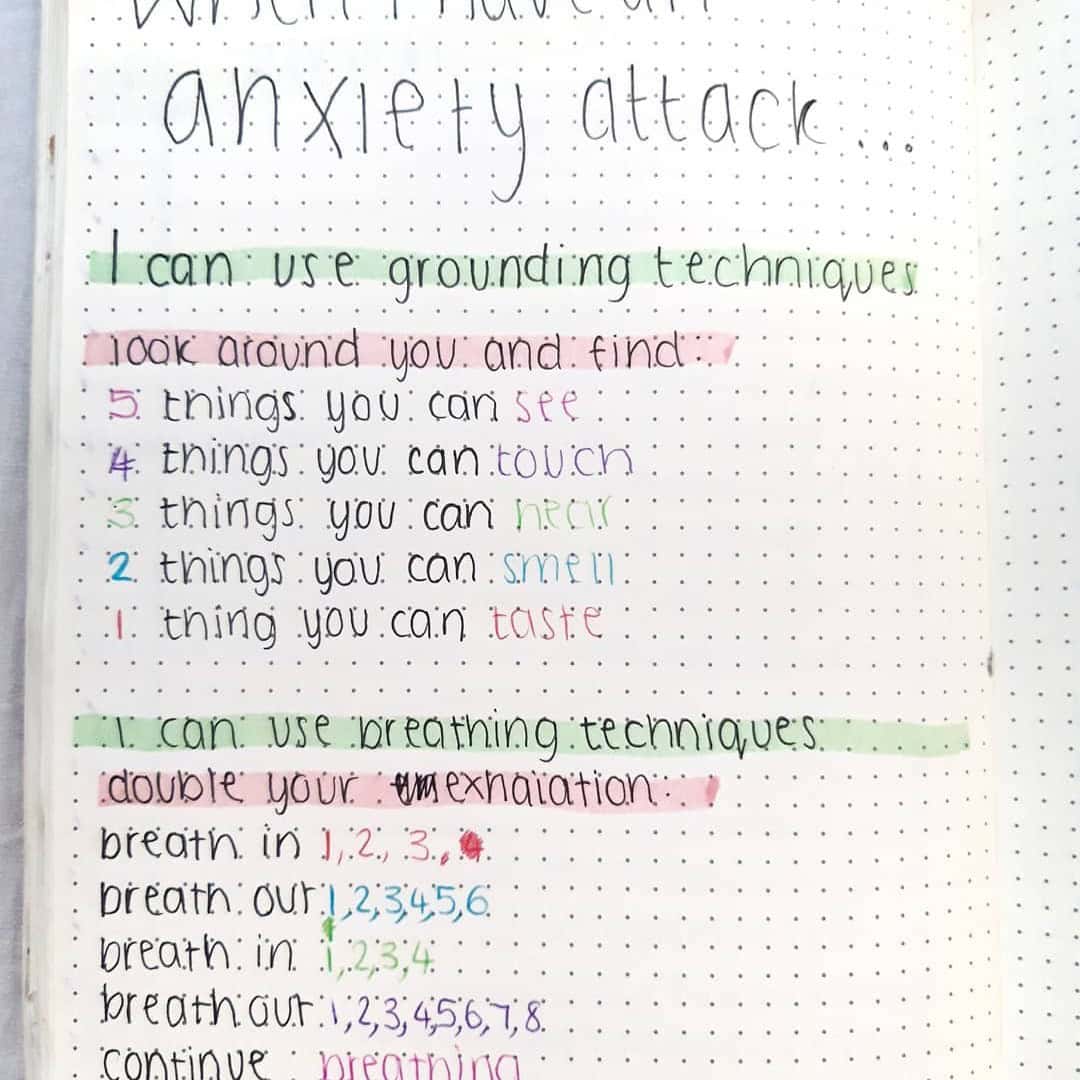 when I have an
anxiety attack...
I can use grounding techniques
look around you and find:
5 things you can see
4 things you can touch
3 things you can hear
2 things you can smell
1 thing you can taste
I can use breathing techniques
double your exhalation:
breath in 1, 2, 3,
breath out 1,2,3,4,5,6
breath in 1,2,3,4
breath out 1,2,3,4,5,6,7,8
continue breathing